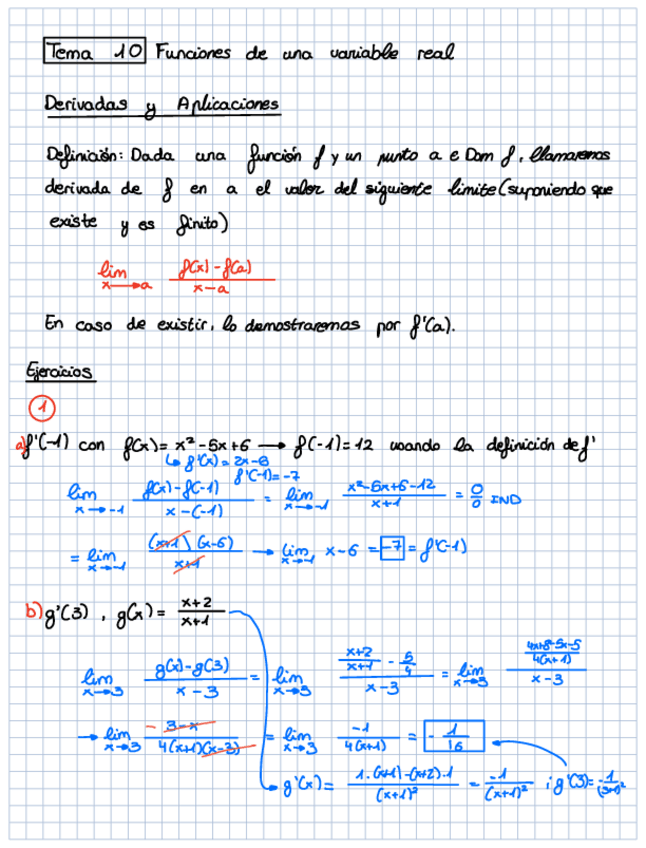 Tema 10 Funciones de una variable real
Derivadas y Aplicaciones
Definición: Dada una función f y un punto a e Dom f, llamaremos
derivada de f en a el valor del siguiente limite (suponiendo que
existe y es finito)
lim x→a (f(x) - f(a)) / (x - a)
En caso de existir, lo demostraremos por f'(a).
Ejercicios
1
a) f'(-1) con f(x) = x² - 5x + 6 → f(-1) = 12 usando la definición de f'
↳ f'(x) = 2x - 5
f'(-1) = -7
lim x→-1 (f(x) - f(-1)) / (x - (-1)) = lim x→-1 (x² - 5x + 6 - 12) / (x + 1) = 0/0 IND
= lim x→-1 ((x+1)(x-6)) / (x+1) → lim x→-1 x - 6 = -7 = f'(-1)
b) g'(3), g(x) = (x+2) / (x+1)
lim x→3 (g(x) - g(3)) / (x - 3) = lim x→3 ((x+2)/(x+1) - 5/4) / (x - 3) = lim x→3 ((4x+8-5x-5) / (4(x+1))) / (x - 3)
→ lim x→3 - (3-x) / (4(x+1)(x-3)) = lim x→3 -1 / (4(x+1)) = - 1/16
g'(x) = (1·(x+1) - (x+2)·1) / (x+1)² = -1 / (x+1)² ; g'(3) = -1 / (3+1)²